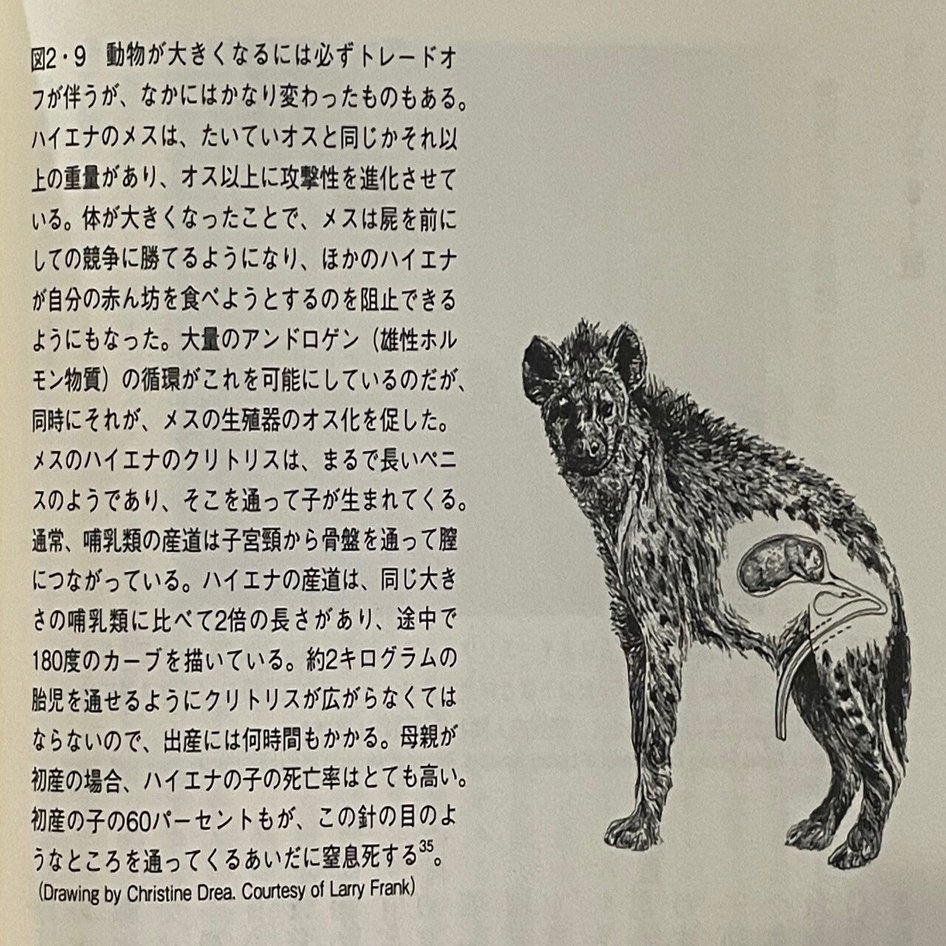 図2・9　動物が大きくなるには必ずトレードオ
フが伴うが、なかにはかなり変わったものもある。
ハイエナのメスは、たいていオスと同じかそれ以
上の重量があり、オス以上に攻撃性を進化させて
いる。体が大きくなったことで、メスは屍を前に
しての競争に勝てるようになり、ほかのハイエナ
が自分の赤ん坊を食べようとするのを阻止できる
ようにもなった。大量のアンドロゲン（雄性ホル
モン物質）の循環がこれを可能にしているのだが、
同時にそれが、メスの生殖器のオス化を促した。
メスのハイエナのクリトリスは、まるで長いペニ
スのようであり、そこを通って子が生まれてくる。
通常、哺乳類の産道は子宮頸から骨盤を通って膣
につながっている。ハイエナの産道は、同じ大き
さの哺乳類に比べて2倍の長さがあり、途中で
180度のカーブを描いている。約2キログラムの
胎児を通せるようにクリトリスが広がらなくては
ならないので、出産には何時間もかかる。母親が
初産の場合、ハイエナの子の死亡率はとても高い。
初産の子の60パーセントもが、この針の目のよ
うなところを通ってくるあいだに窒息死する35。
（Drawing by Christine Drea. Courtesy of Larry Frank）